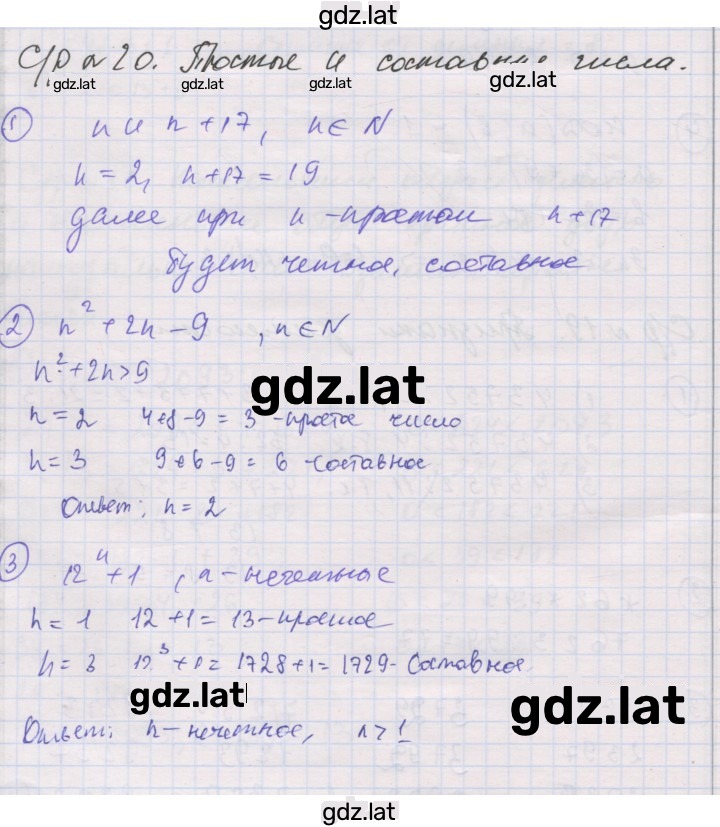 gdz.lat
С/р № 20. Простые и составные числа.
gdz.lat gdz.lat gdz.lat gdz.lat
① n и n + 17, n ∈ N
n = 2, n + 17 = 19
далее при n - простом n + 17
будет четное, составное
② n² + 2n - 9, n ∈ N
n² + 2n > 9
gdz.lat
n = 2 4+8-9 = 3 - простое число
n = 3 9+6-9 = 6 - составное
Ответ: n = 2
③ 12ⁿ + 1, n - нечетные
n = 1 12 + 1 = 13 - простое
n = 3 12³ + 1 = 1728 + 1 = 1729 - составное
gdz.lat
gdz.lat
Ответ: n - нечетное, n > 1
gdz.lat